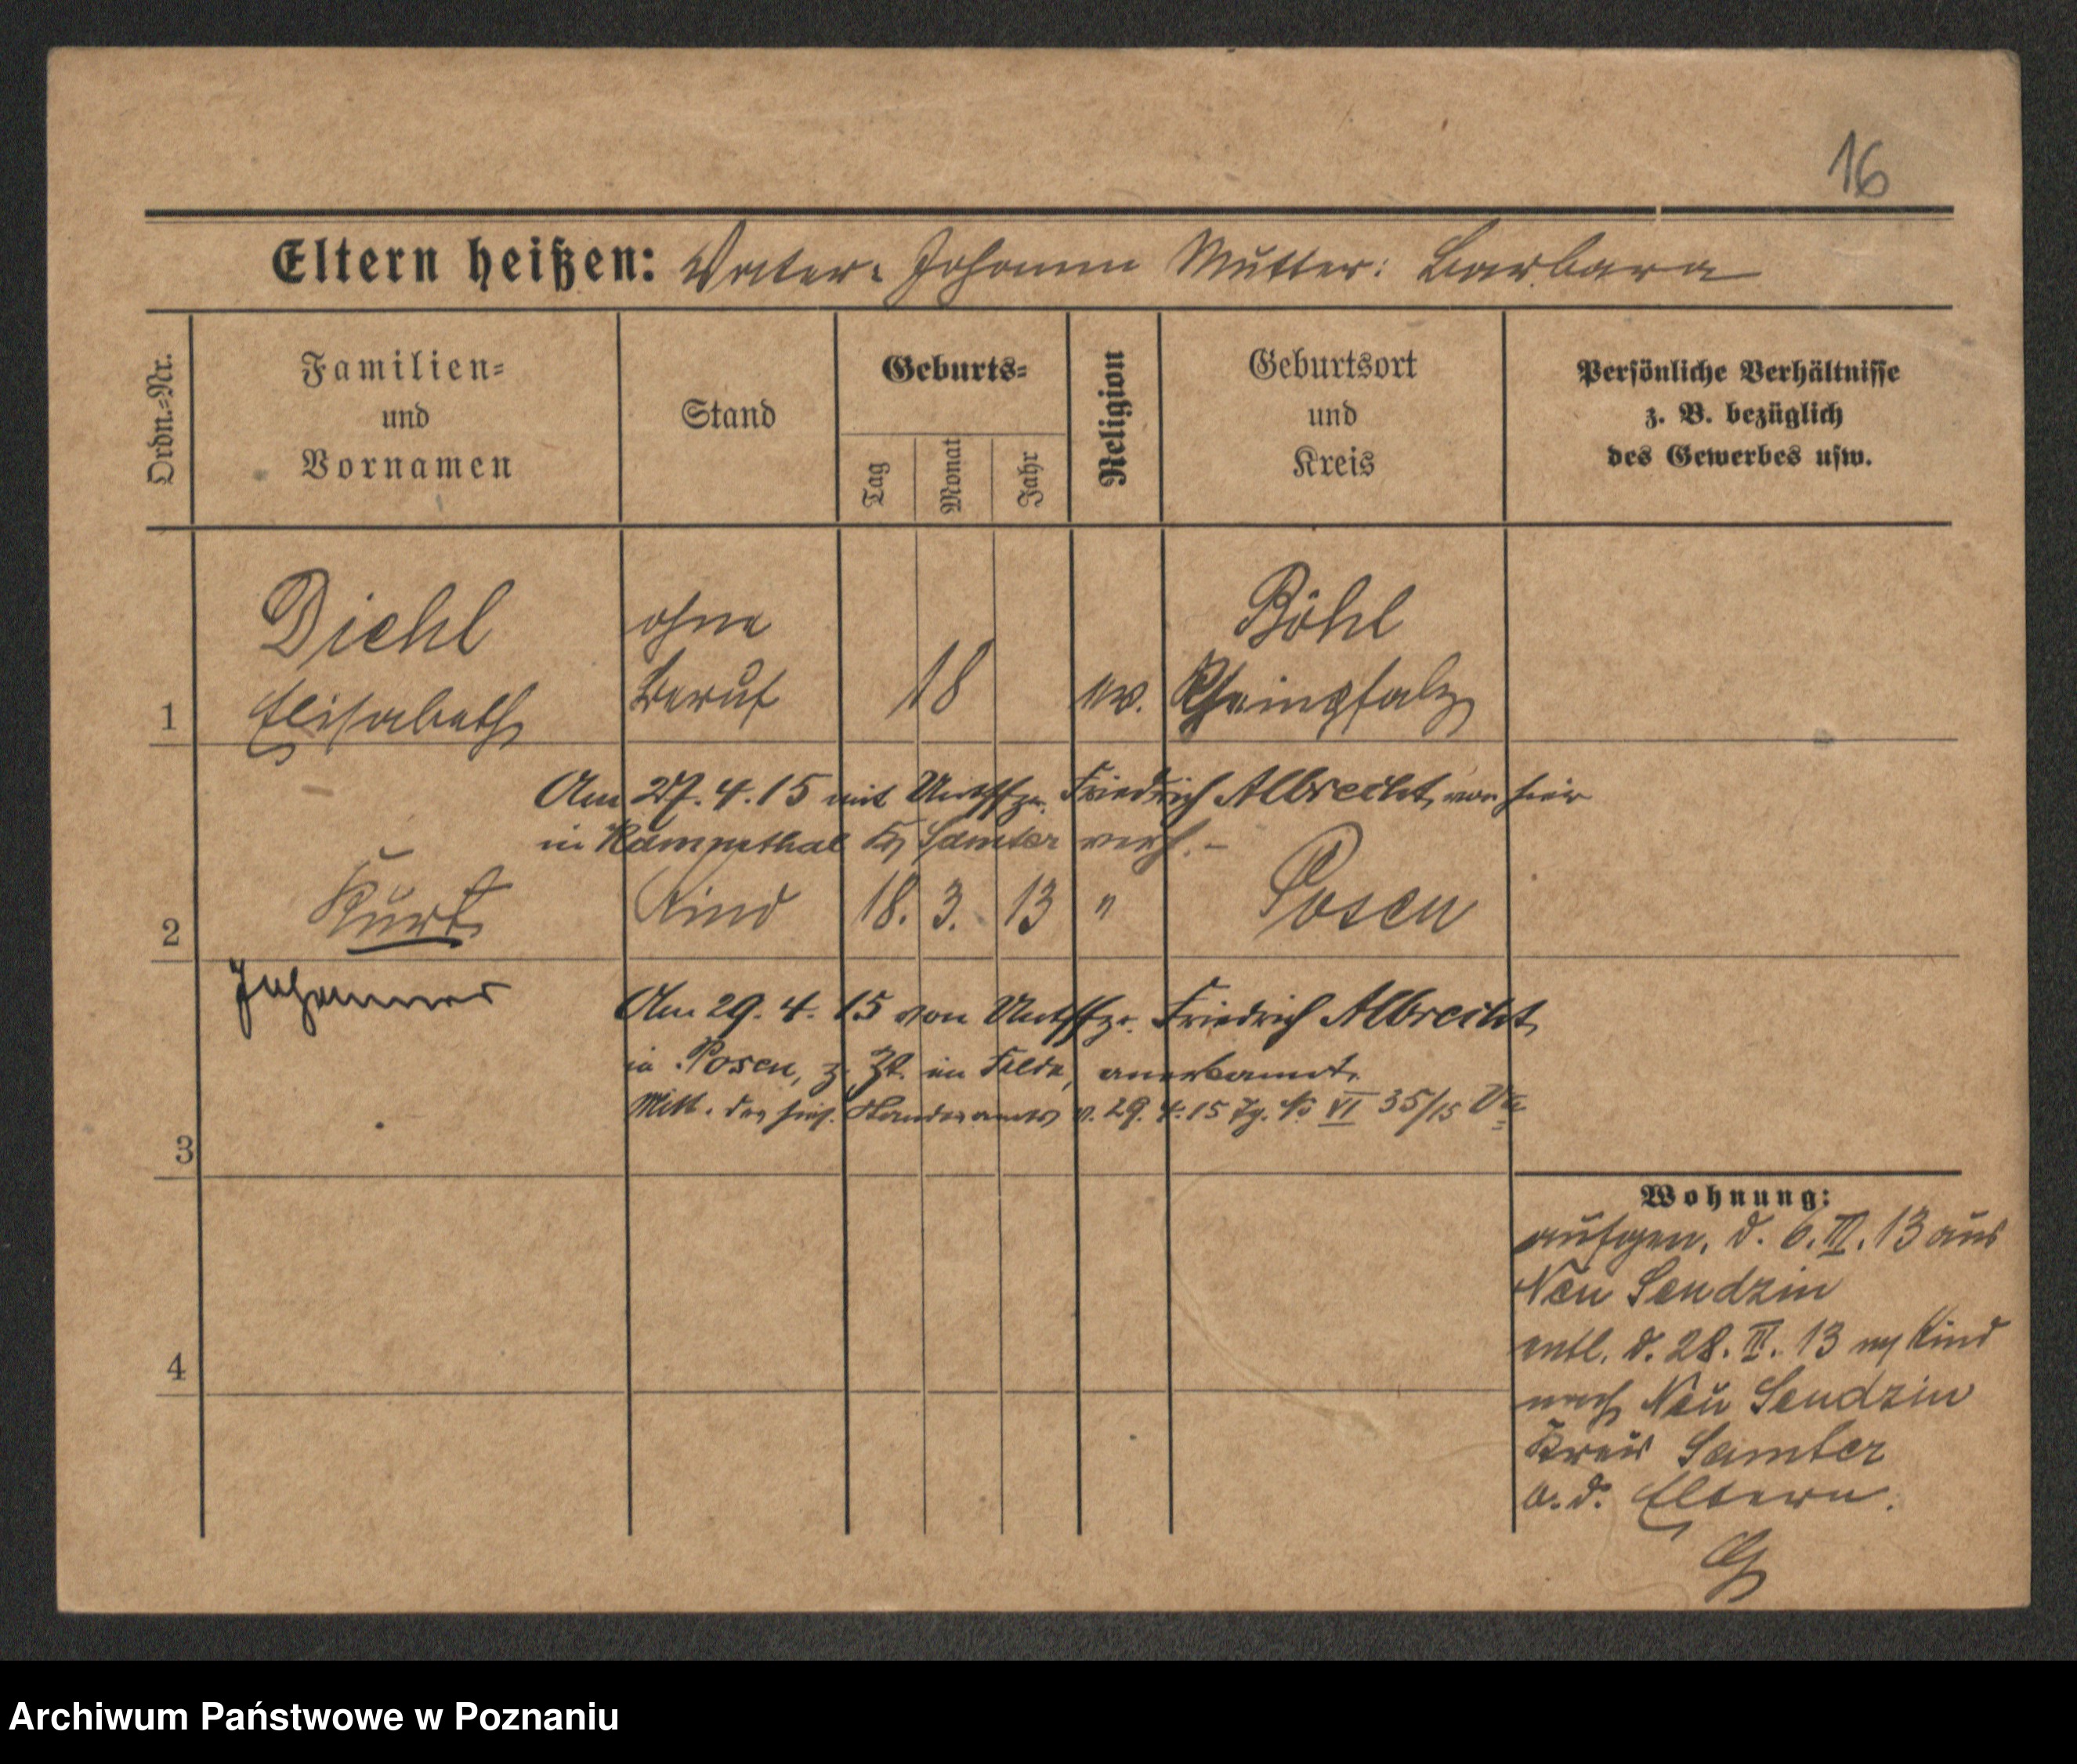 16
Eltern heißen: Vater: Johann Mutter: Barbara
Ordn.-Nr.
Familien-
und
Vornamen
Stand
Geburts-
Tag
Monat
Jahr
Religion
Geburtsort
und
Kreis
Persönliche Verhältnisse
z. B. bezüglich
des Gewerbes usw.
1
Diehl
Elisabeth
ohne
Beruf
18
ev.
Böhl
Rheinpfalz
Am 27.4.15 mit Untffz. Friedrich Albrecht von hier
in Kämpethal Kr. Samter verh. -
2
Kurt
Kind
18. 3. 13
"
Posen
Johannes
Am 29.4.15 von Untffz. Friedrich Albrecht,
in Posen, z. Zt. im Felde, anerkannt.
Mitt. des hies. Standesamts v. 29.4.15 Tg. No VI 35/15
3
4
Wohnung:
aufgen. d. 6.III.13 aus
Neu Sendzin
entl. d. 28.III.13 m/ Kind
nach Neu Sendzin
Kreis Samter
b. d. Eltern.
Archiwum Państwowe w Poznaniu